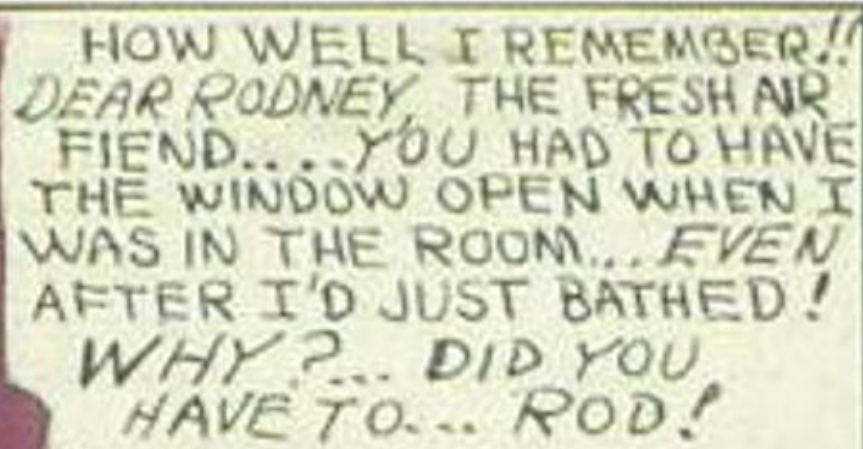 HOW WELL I REMEMBER!!
DEAR RODNEY, THE FRESH AIR
FIEND.... YOU HAD TO HAVE
THE WINDOW OPEN WHEN I
WAS IN THE ROOM... EVEN
AFTER I'D JUST BATHED!
WHY?... DID YOU
HAVE TO... ROD!